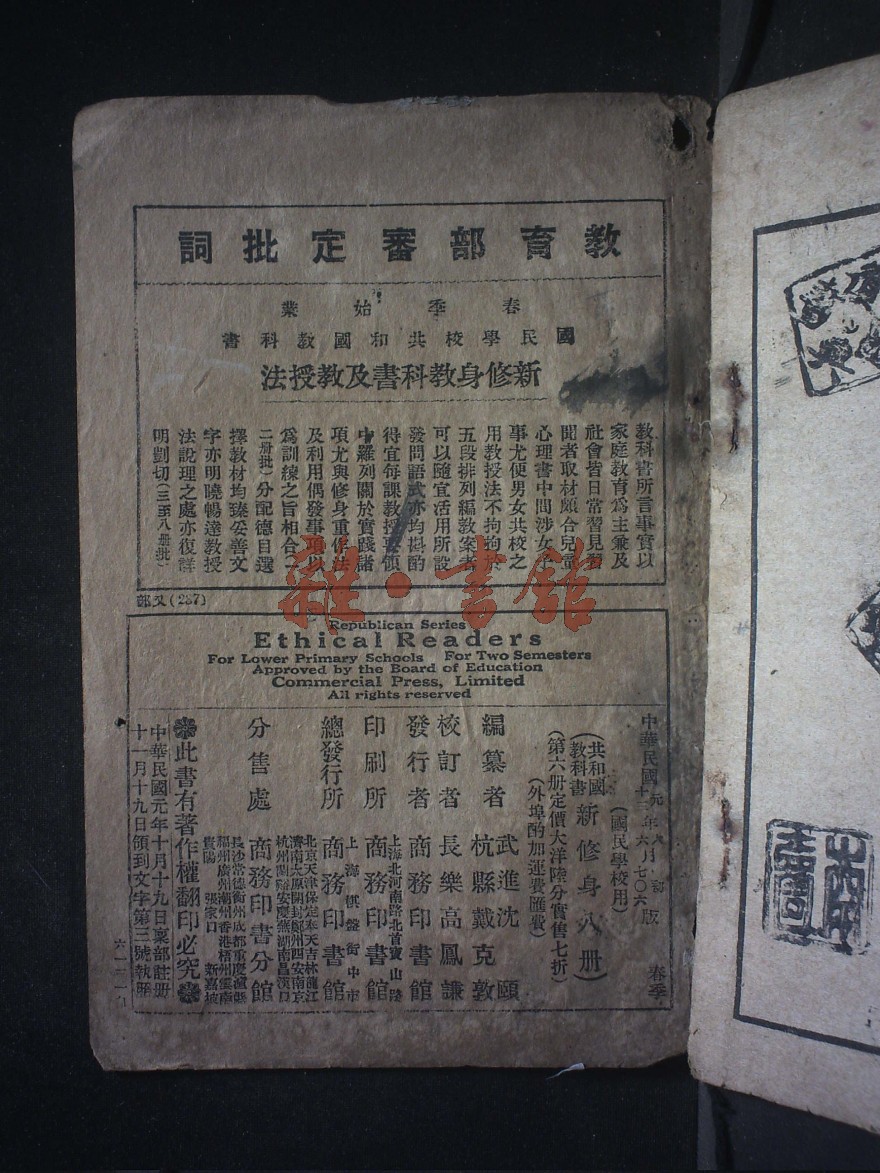 教育部審定批詞
春季始業
國民學校共和國教科書
新修身教科書及教授法
教科書所言事實以
家庭教育爲主兼及
社會皆日常習見習
聞者取材頗合兒童
心理書中間涉女子
事尤便男女共校之
用教授法不拘拘於
五段排列編教案者
可以隨宜活用所設
發問語式亦均斟酌
得宜每課教授要領
中羅列關於實踐諸
項尤與修身重作法
及利用偶發事項以
爲訓練之旨相合(一
二册批)分配德目選
擇教材均臻妥善文
字亦明曉暢達教授
法說理之處亦復詳
明剴切(三至八册批)
(237)又部
Republican Series
Ethical Readers
For Lower Primary Schools For Two Semesters
Approved by the Board of Education
Commercial Press, Limited
All rights reserved
中華民國
春季
(國民學校用)
(共和國教科書新修身八册)
(第六册定價大洋陸分實售七折)
(外埠酌加運費匯費)
編纂者 武進沈頤 杭縣戴克敦
校訂者 長樂高鳳謙
發行者 商務印書館
上海北河南路北首寶山路
印刷所 商務印書館
上海棋盤街中市
總發行所 商務印書館
北京天津保定奉天吉林龍江
濟南太原開封鄭州西安南京
杭州蘭谿安慶蕪湖南昌漢口
分售處 商務印書分館
長沙常德衡州成都重慶瀘縣
福州廣州潮州香港梧州雲南
貴陽 張家口 新嘉坡
此書有著作權翻印必究
中華民國元年十月十九日稟部註册
十一月十九日領到文字第三號執照
雜·書館